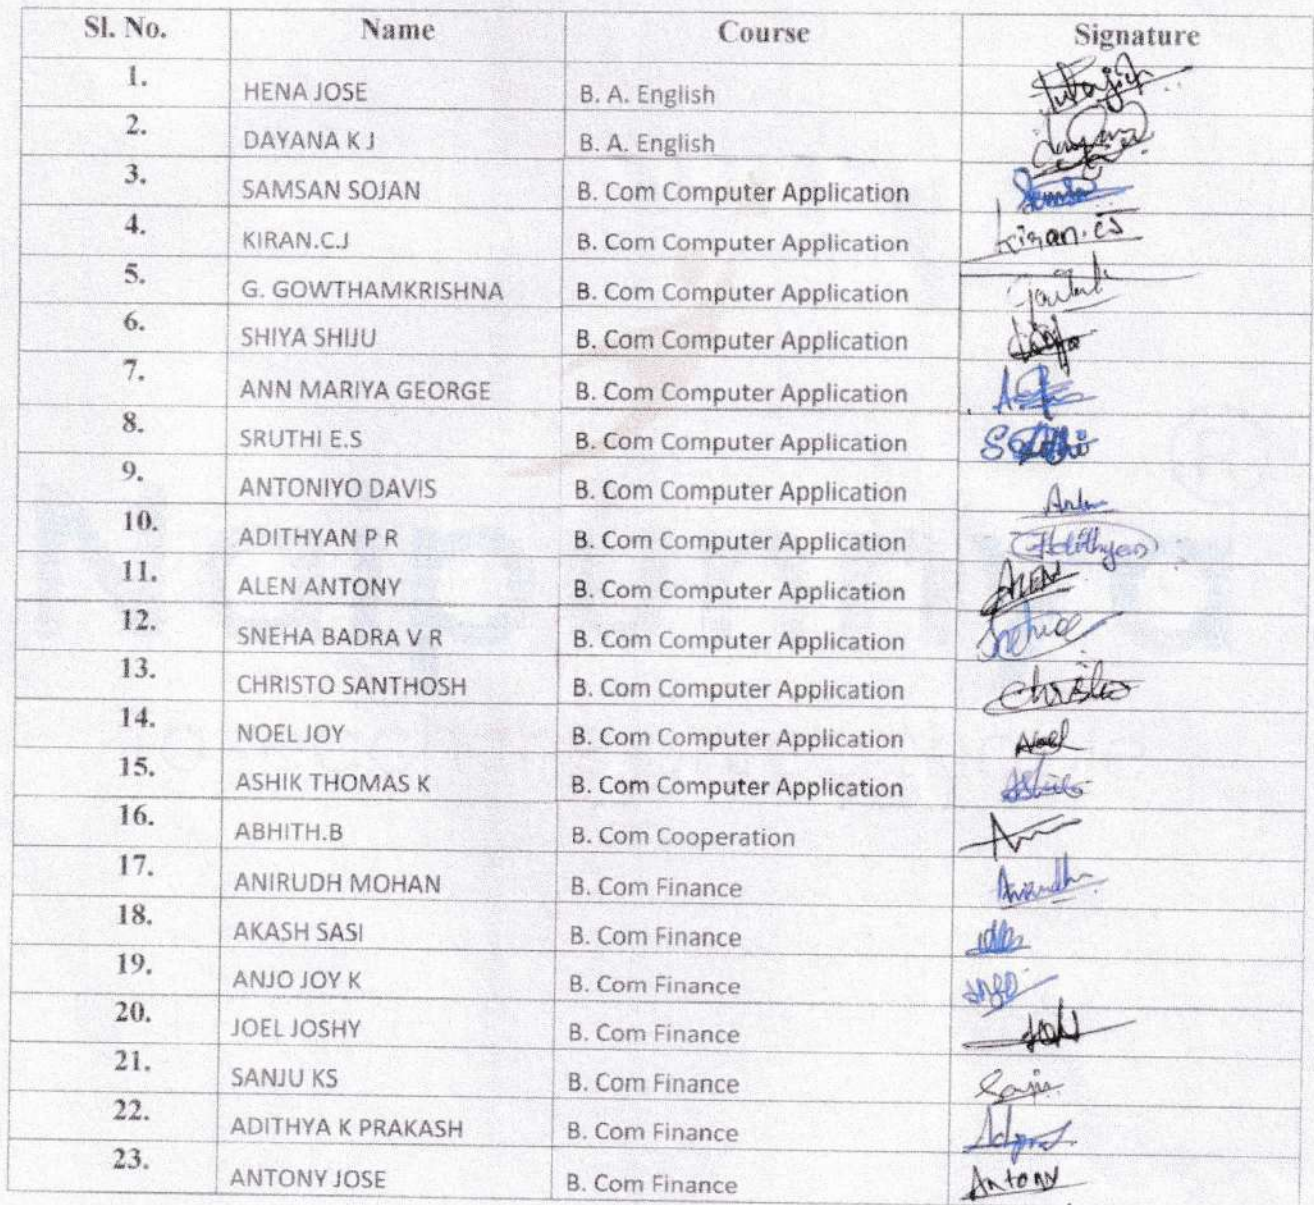 Sl. No. Name Course Signature
1. HENA JOSE B. A. English
2. DAYANA K J B. A. English
3. SAMSAN SOJAN B. Com Computer Application
4. KIRAN.C.J B. Com Computer Application Kiran.cJ
5. G. GOWTHAMKRISHNA B. Com Computer Application
6. SHIYA SHIJU B. Com Computer Application
7. ANN MARIYA GEORGE B. Com Computer Application
8. SRUTHI E.S B. Com Computer Application
9. ANTONIYO DAVIS B. Com Computer Application
10. ADITHYAN P R B. Com Computer Application
11. ALEN ANTONY B. Com Computer Application ALEN
12. SNEHA BADRA V R B. Com Computer Application
13. CHRISTO SANTHOSH B. Com Computer Application Christo
14. NOEL JOY B. Com Computer Application Noel
15. ASHIK THOMAS K B. Com Computer Application
16. ABHITH.B B. Com Cooperation
17. ANIRUDH MOHAN B. Com Finance Anirudh
18. AKASH SASI B. Com Finance
19. ANJO JOY K B. Com Finance
20. JOEL JOSHY B. Com Finance
21. SANJU KS B. Com Finance
22. ADITHYA K PRAKASH B. Com Finance
23. ANTONY JOSE B. Com Finance Antony